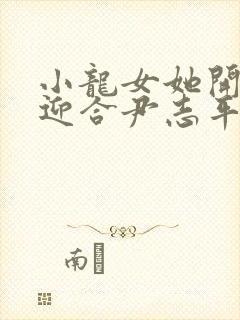 小龍女她開
迎合尹志平
南